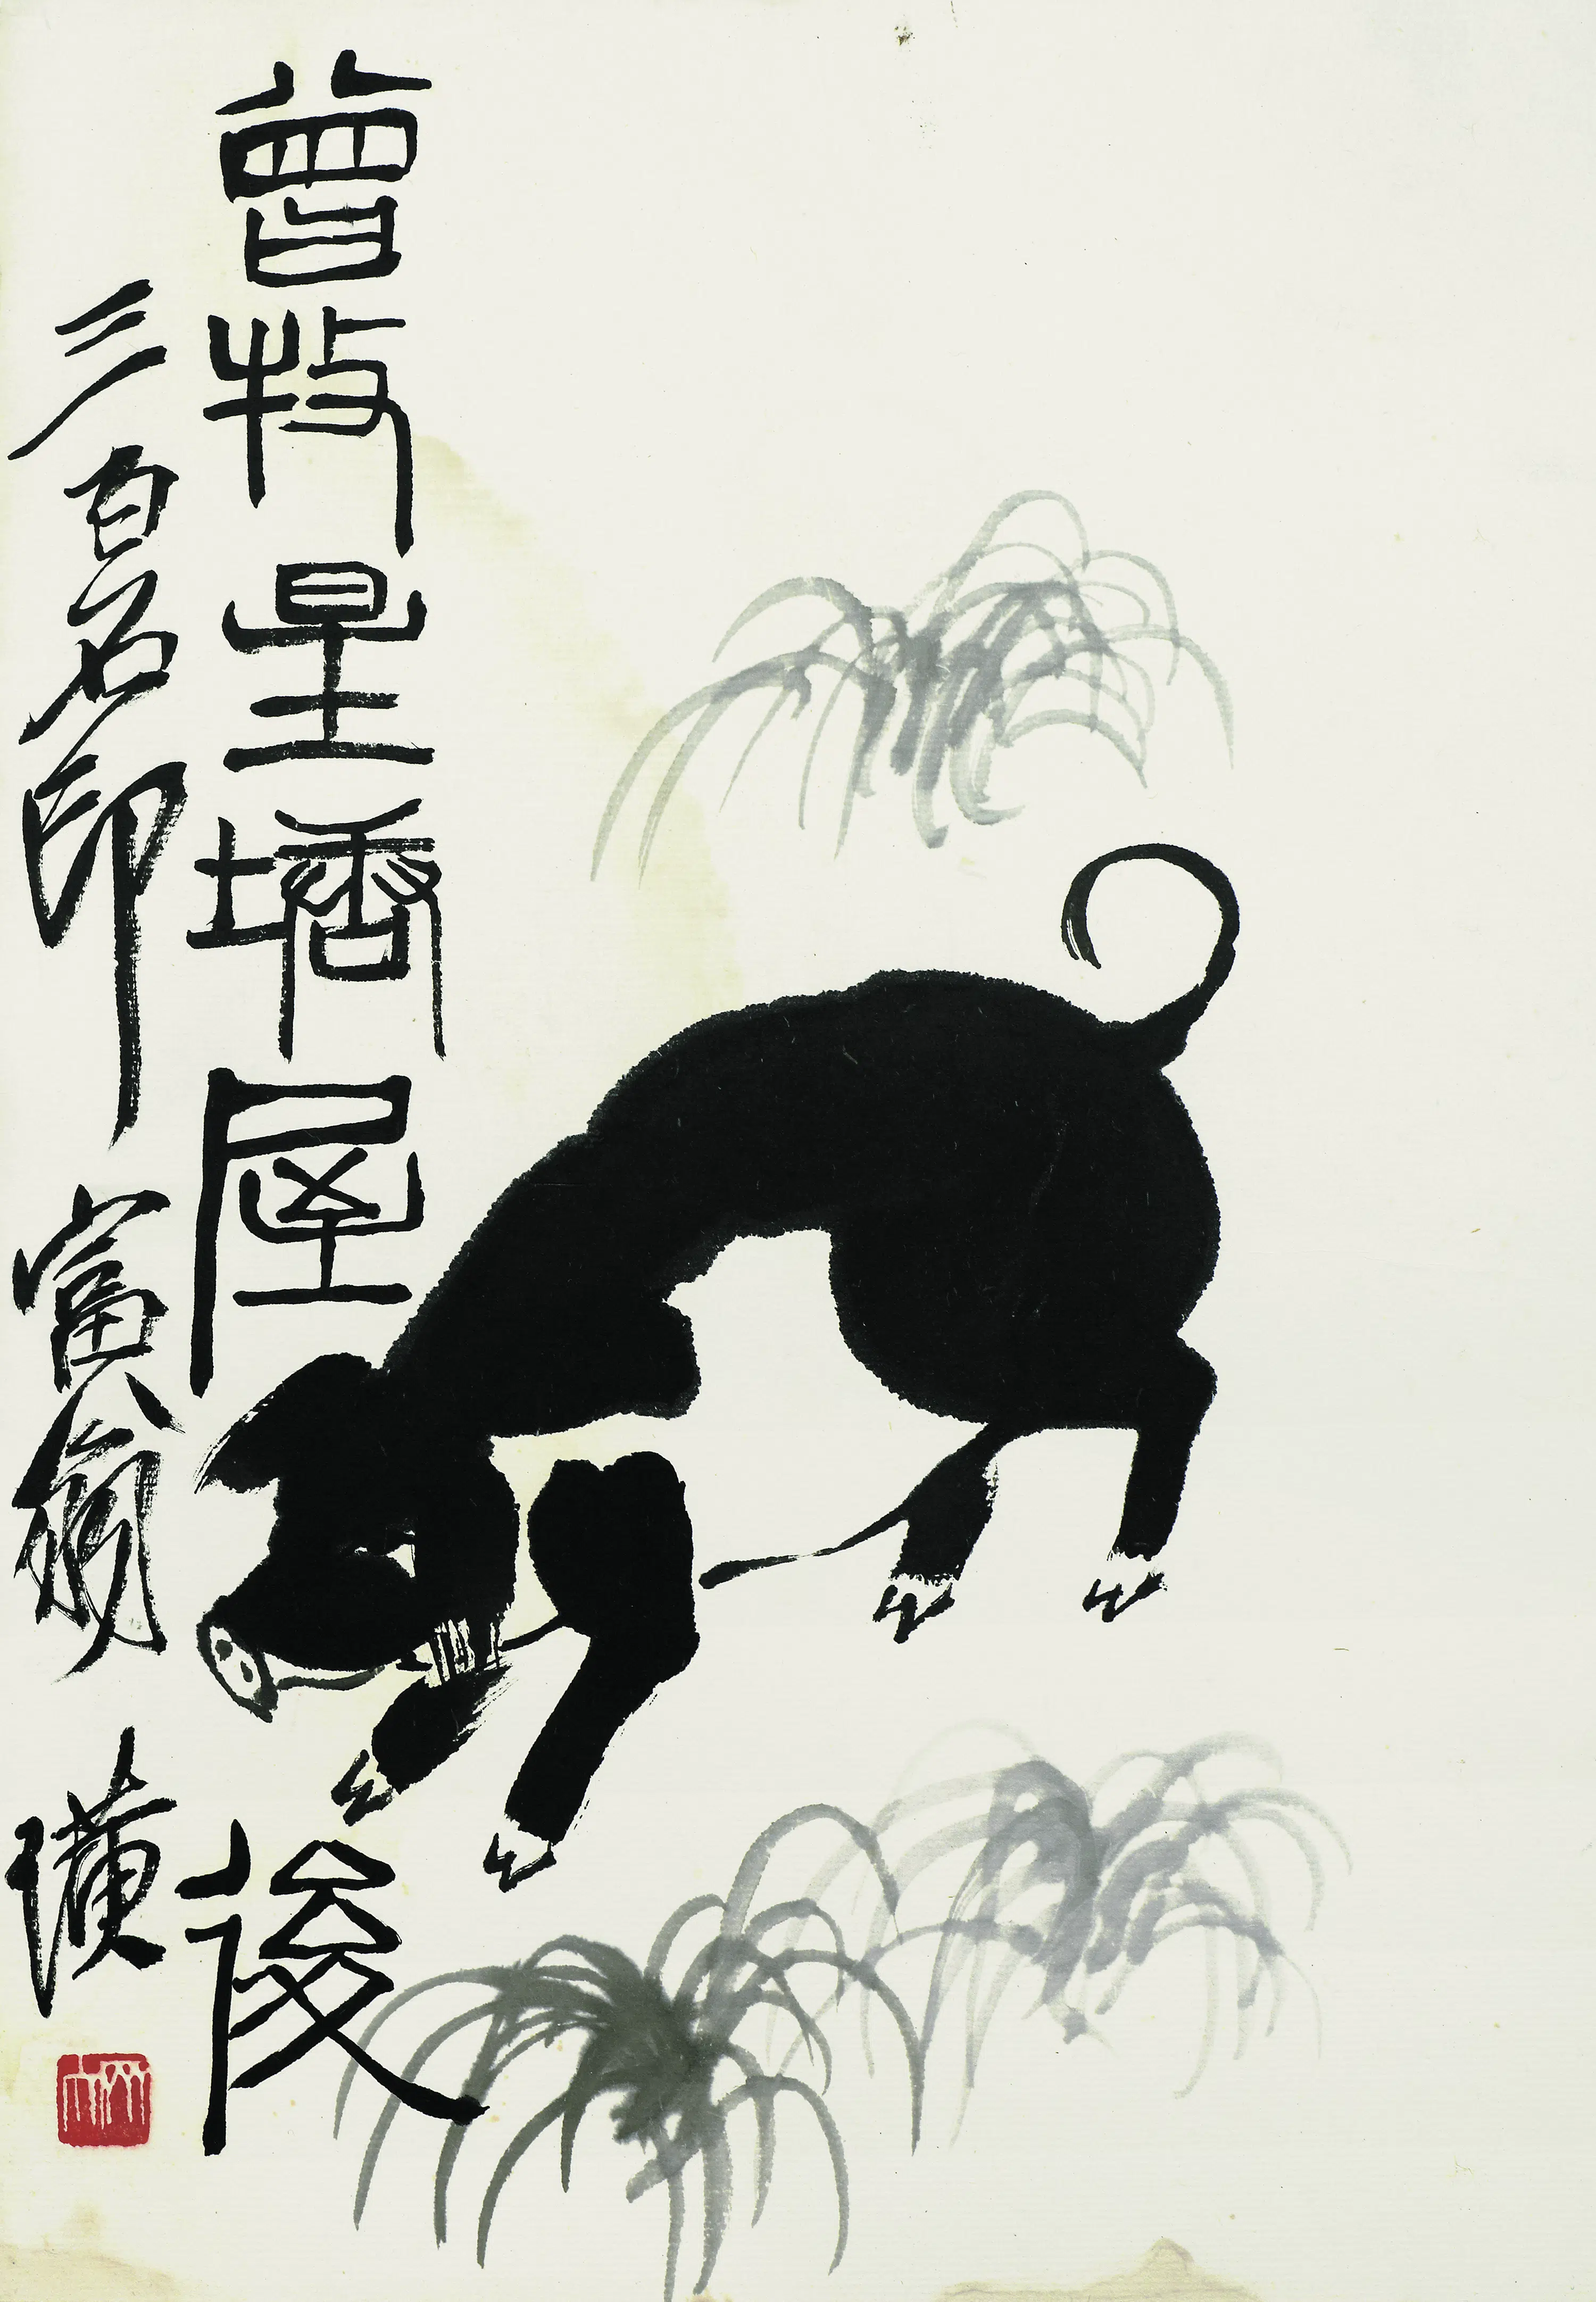 曾牧星塘屋後
三百石印富翁 璜
木人